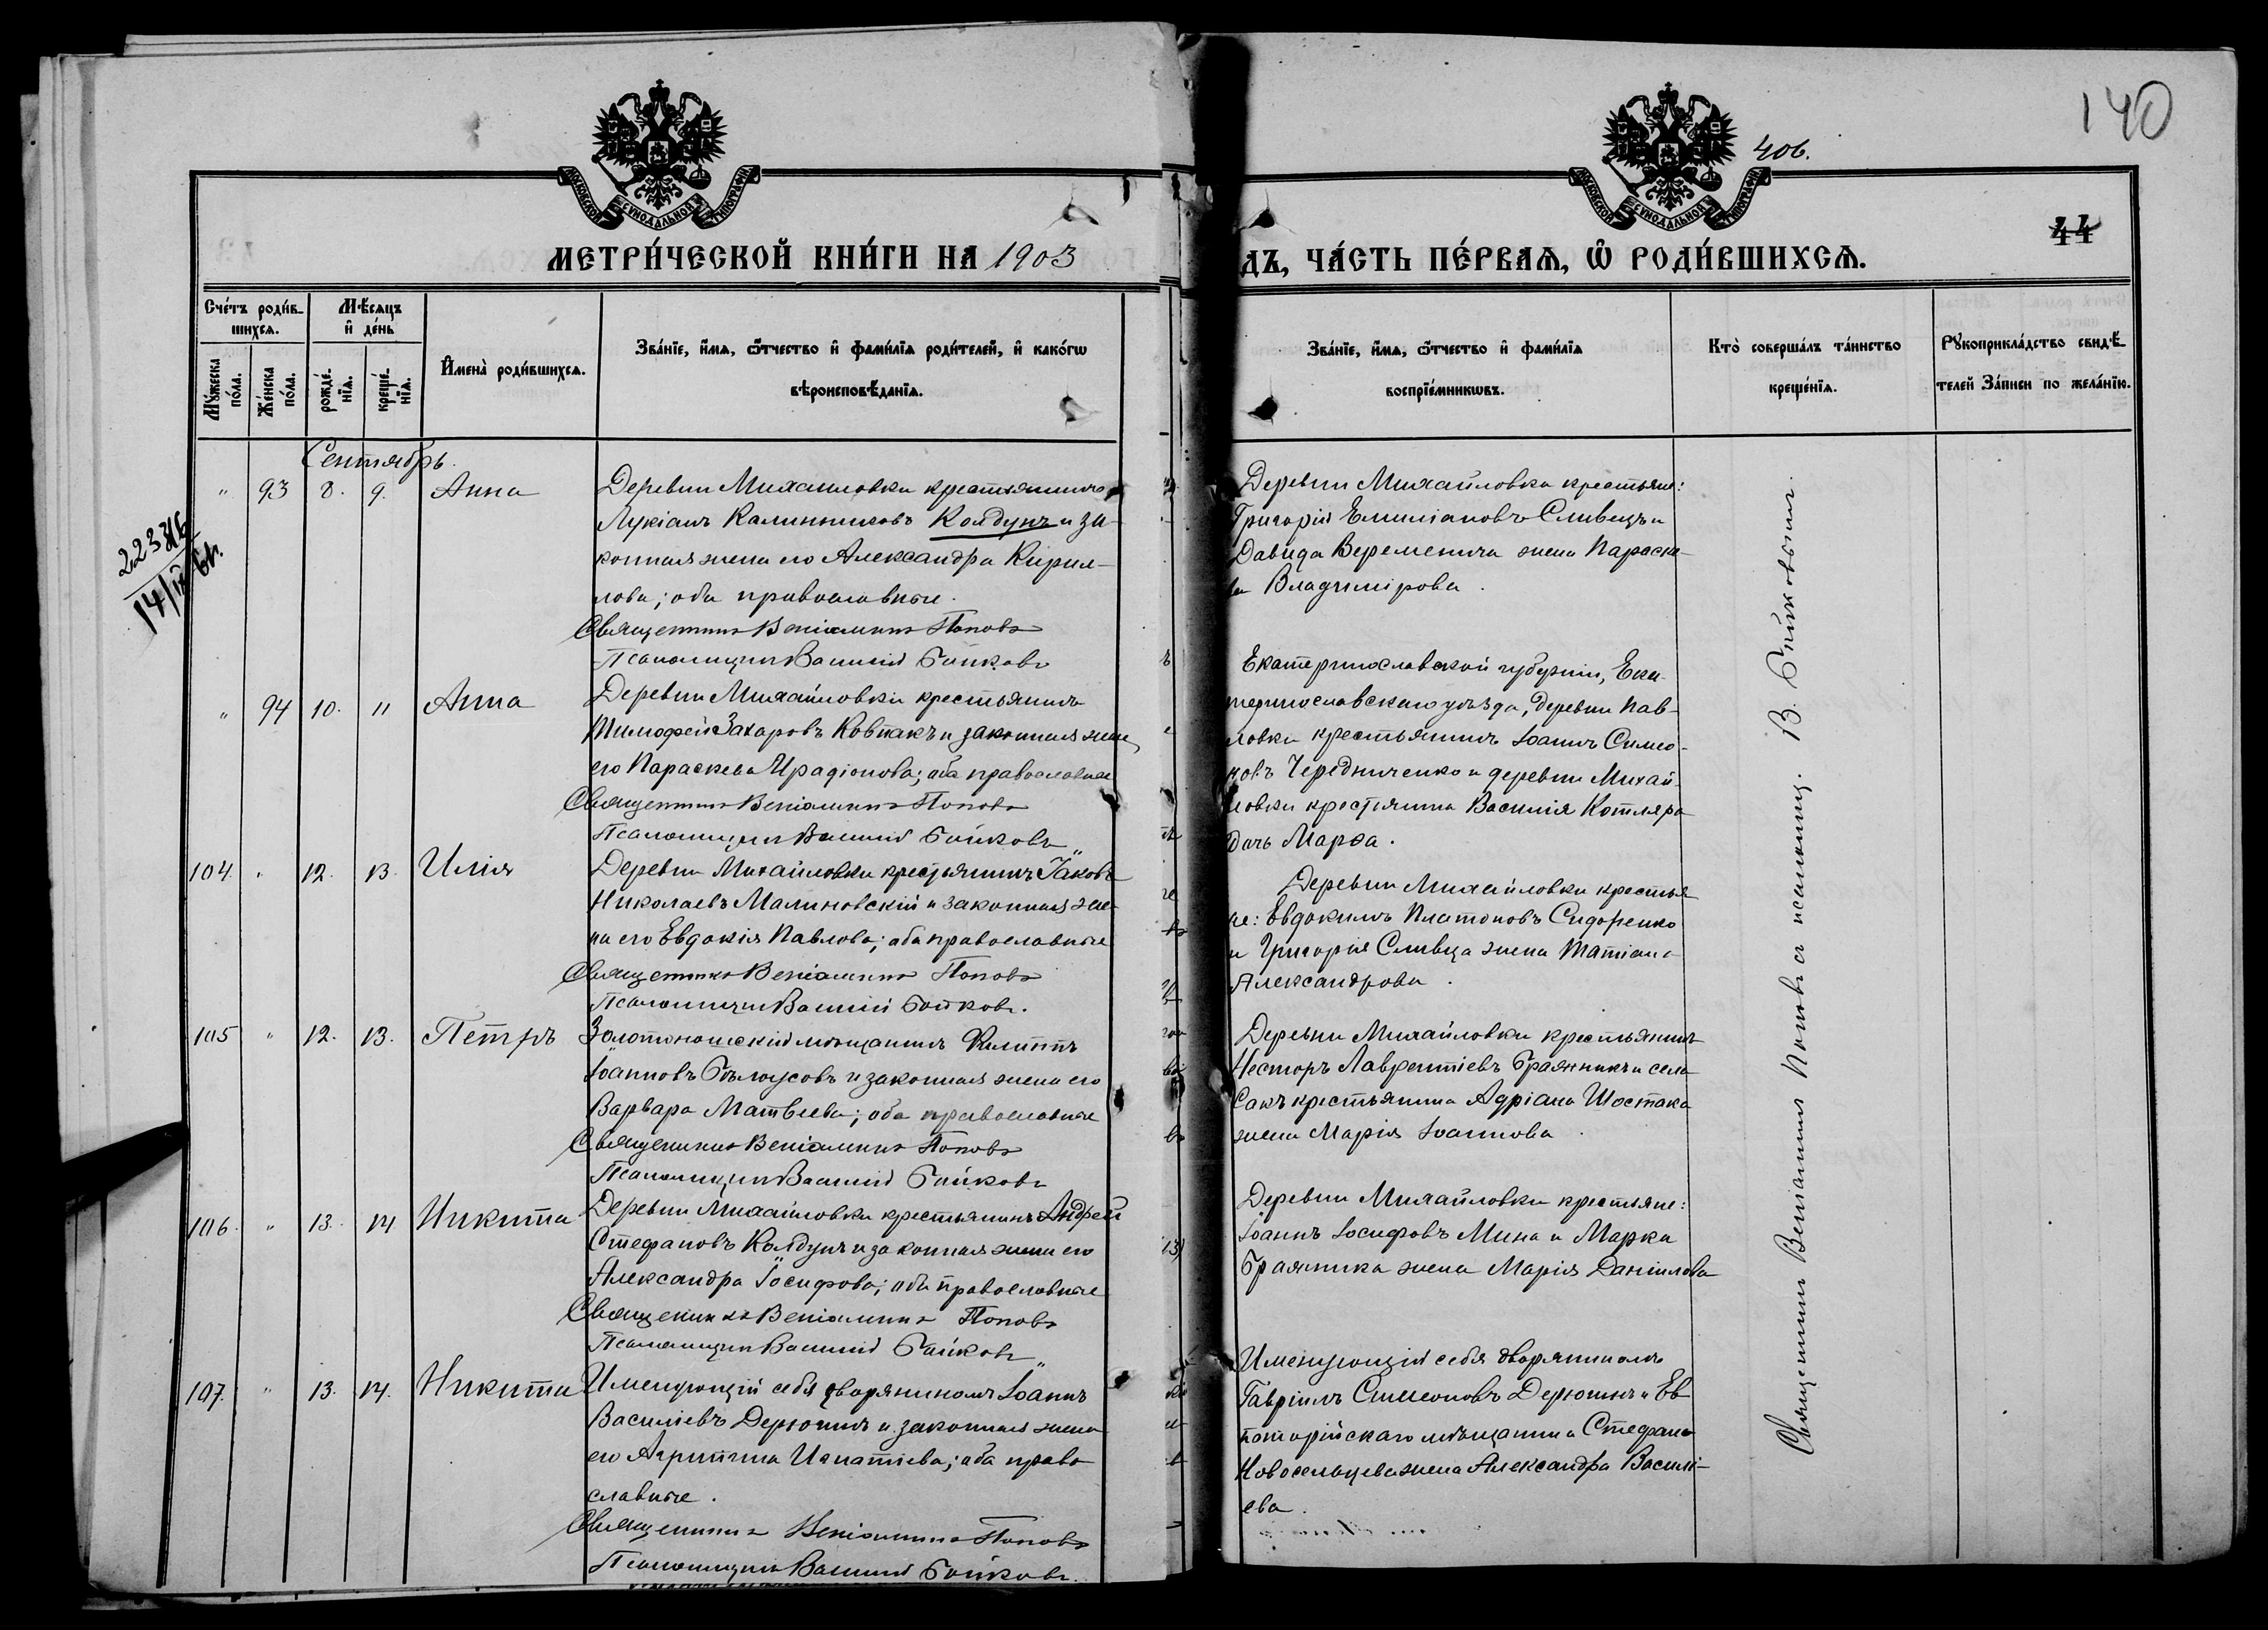 140
406.
44
МОСКОВСКОЙ СѴНОДАЛЬНОЙ ТИПОГРАФІИ
МОСКОВСКОЙ СѴНОДАЛЬНОЙ ТИПОГРАФІИ
МЕТРИ́ЧЕСКОЙ КНИ́ГИ НА 1903
ДЪ, ЧА́СТЬ ПЕ́РВАѦ, Ѡ҆ РОДИ́ВШИХСѦ.
Сче́тъ роди́в-
шихсѧ.
Мꙋ́жеска по́ла.
Же́нска по́ла.
Мѣ́сѧцъ
и҆ де́нь
рожде́-нїѧ.
креще́-нїѧ.
И҆мена̀ роди́вшихсѧ.
Зва́нїе, и҆́мѧ, ѻ҆́тчество и҆ фами́лїѧ роди́телей, и҆ како́гѡ
вѣроисповѣ́данїѧ.
Зва́нїе, и҆́мѧ, ѻ҆́тчество и҆ фами́лїѧ
воспрїе́мникѡвъ.
Кто̀ соверша́лъ та́инство
креще́нїѧ.
Рꙋкоприкла́дство свидѣ́-
телей За́писи по жела́нїю.
Сентябрь.
" 93 8. 9. Анна
Деревни Михайловки крестьянинъ
Лукіанъ Калинниковъ Колдунъ и за-
конная жена его Александра Кирил-
лова; оба православные.
Священникъ Веніаминъ Поповъ
Псаломщикъ Василій Бойковъ
Деревни Михайловки крестьяне:
Григорій Емиліановъ Сливецъ и
Давида Веременича жена Параске-
ва Владимірова.
" 94 10. 11 Анна
Деревни Михайловки крестьянинъ
Тимофей Захаровъ Ковпакъ и законная жена
его Параскева Ирадіонова; оба православные
Священникъ Веніаминъ Поповъ
Псаломщикъ Василій Бойковъ
Екатеринославской губерніи, Ека-
теринославскаго уѣзда, деревни Пав-
ловки крестьянинъ Іоаннъ Симео-
новъ Чередниченко и деревни Михай-
ловки крестьянина Василія Котляра
дочь Марѳа.
104. " 12. 13. Илія
Деревни Михайловки крестьянинъ Іаковъ
Николаевъ Малиновскій и законная же-
на его Евдокія Павлова; оба православные
Священникъ Веніаминъ Поповъ
Псаломщикъ Василій Бойковъ.
Деревни Михайловки крестья
не: Евдокимъ Платоновъ Сидоренко
и Григорія Сливца жена Татіана
Александрова.
105 " 12. 13. Петръ
Золотоношскій мѣщанинъ Филиппъ
Іоанновъ Бѣлоусовъ и законная жена его
Варвара Матвеева; оба православные
Священникъ Веніаминъ Поповъ
Псаломщикъ Василій Бойковъ
Деревни Михайловки крестьянинъ
Несторъ Лаврентіевъ Бражникъ и села
Сакъ крестьянина Адріана Шостака
жена Марія Іоаннова.
106. " 13. 14 Никита
Деревни Михайловки крестьянинъ Андрей
Стефановъ Колдунъ и законная жена его
Александра Іосифова; оба православные
Священникъ Веніаминъ Поповъ
Псаломщикъ Василій Бойковъ
Деревни Михайловки крестьяне:
Іоаннъ Іосифовъ Мина и Марка
Бражника жена Марія Даніилова
107. " 13. 14. Никита
Именующій себя дворяниномъ Іоаннъ
Василіевъ Дерюгинъ и законная жена
его Агриппина Игнатіева; оба право-
славные.
Священникъ Веніаминъ Поповъ
Псаломщикъ Василій Бойковъ.
Именующій себя дворяниномъ
Гавріилъ Симеоновъ Дерюгинъ и Ев-
паторійскаго мѣщанина Стефана
Новосельцева жена Александра Василі-
ева.
Священникъ Веніаминъ Поповъ съ псаломщ. В. Бойковымъ.